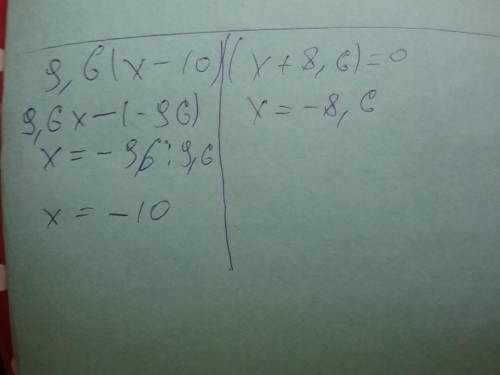 9,6(x-10)(x+8,6)=0
9,6x-(-96)
x=-96:9,6
x=-10
x=-8,6